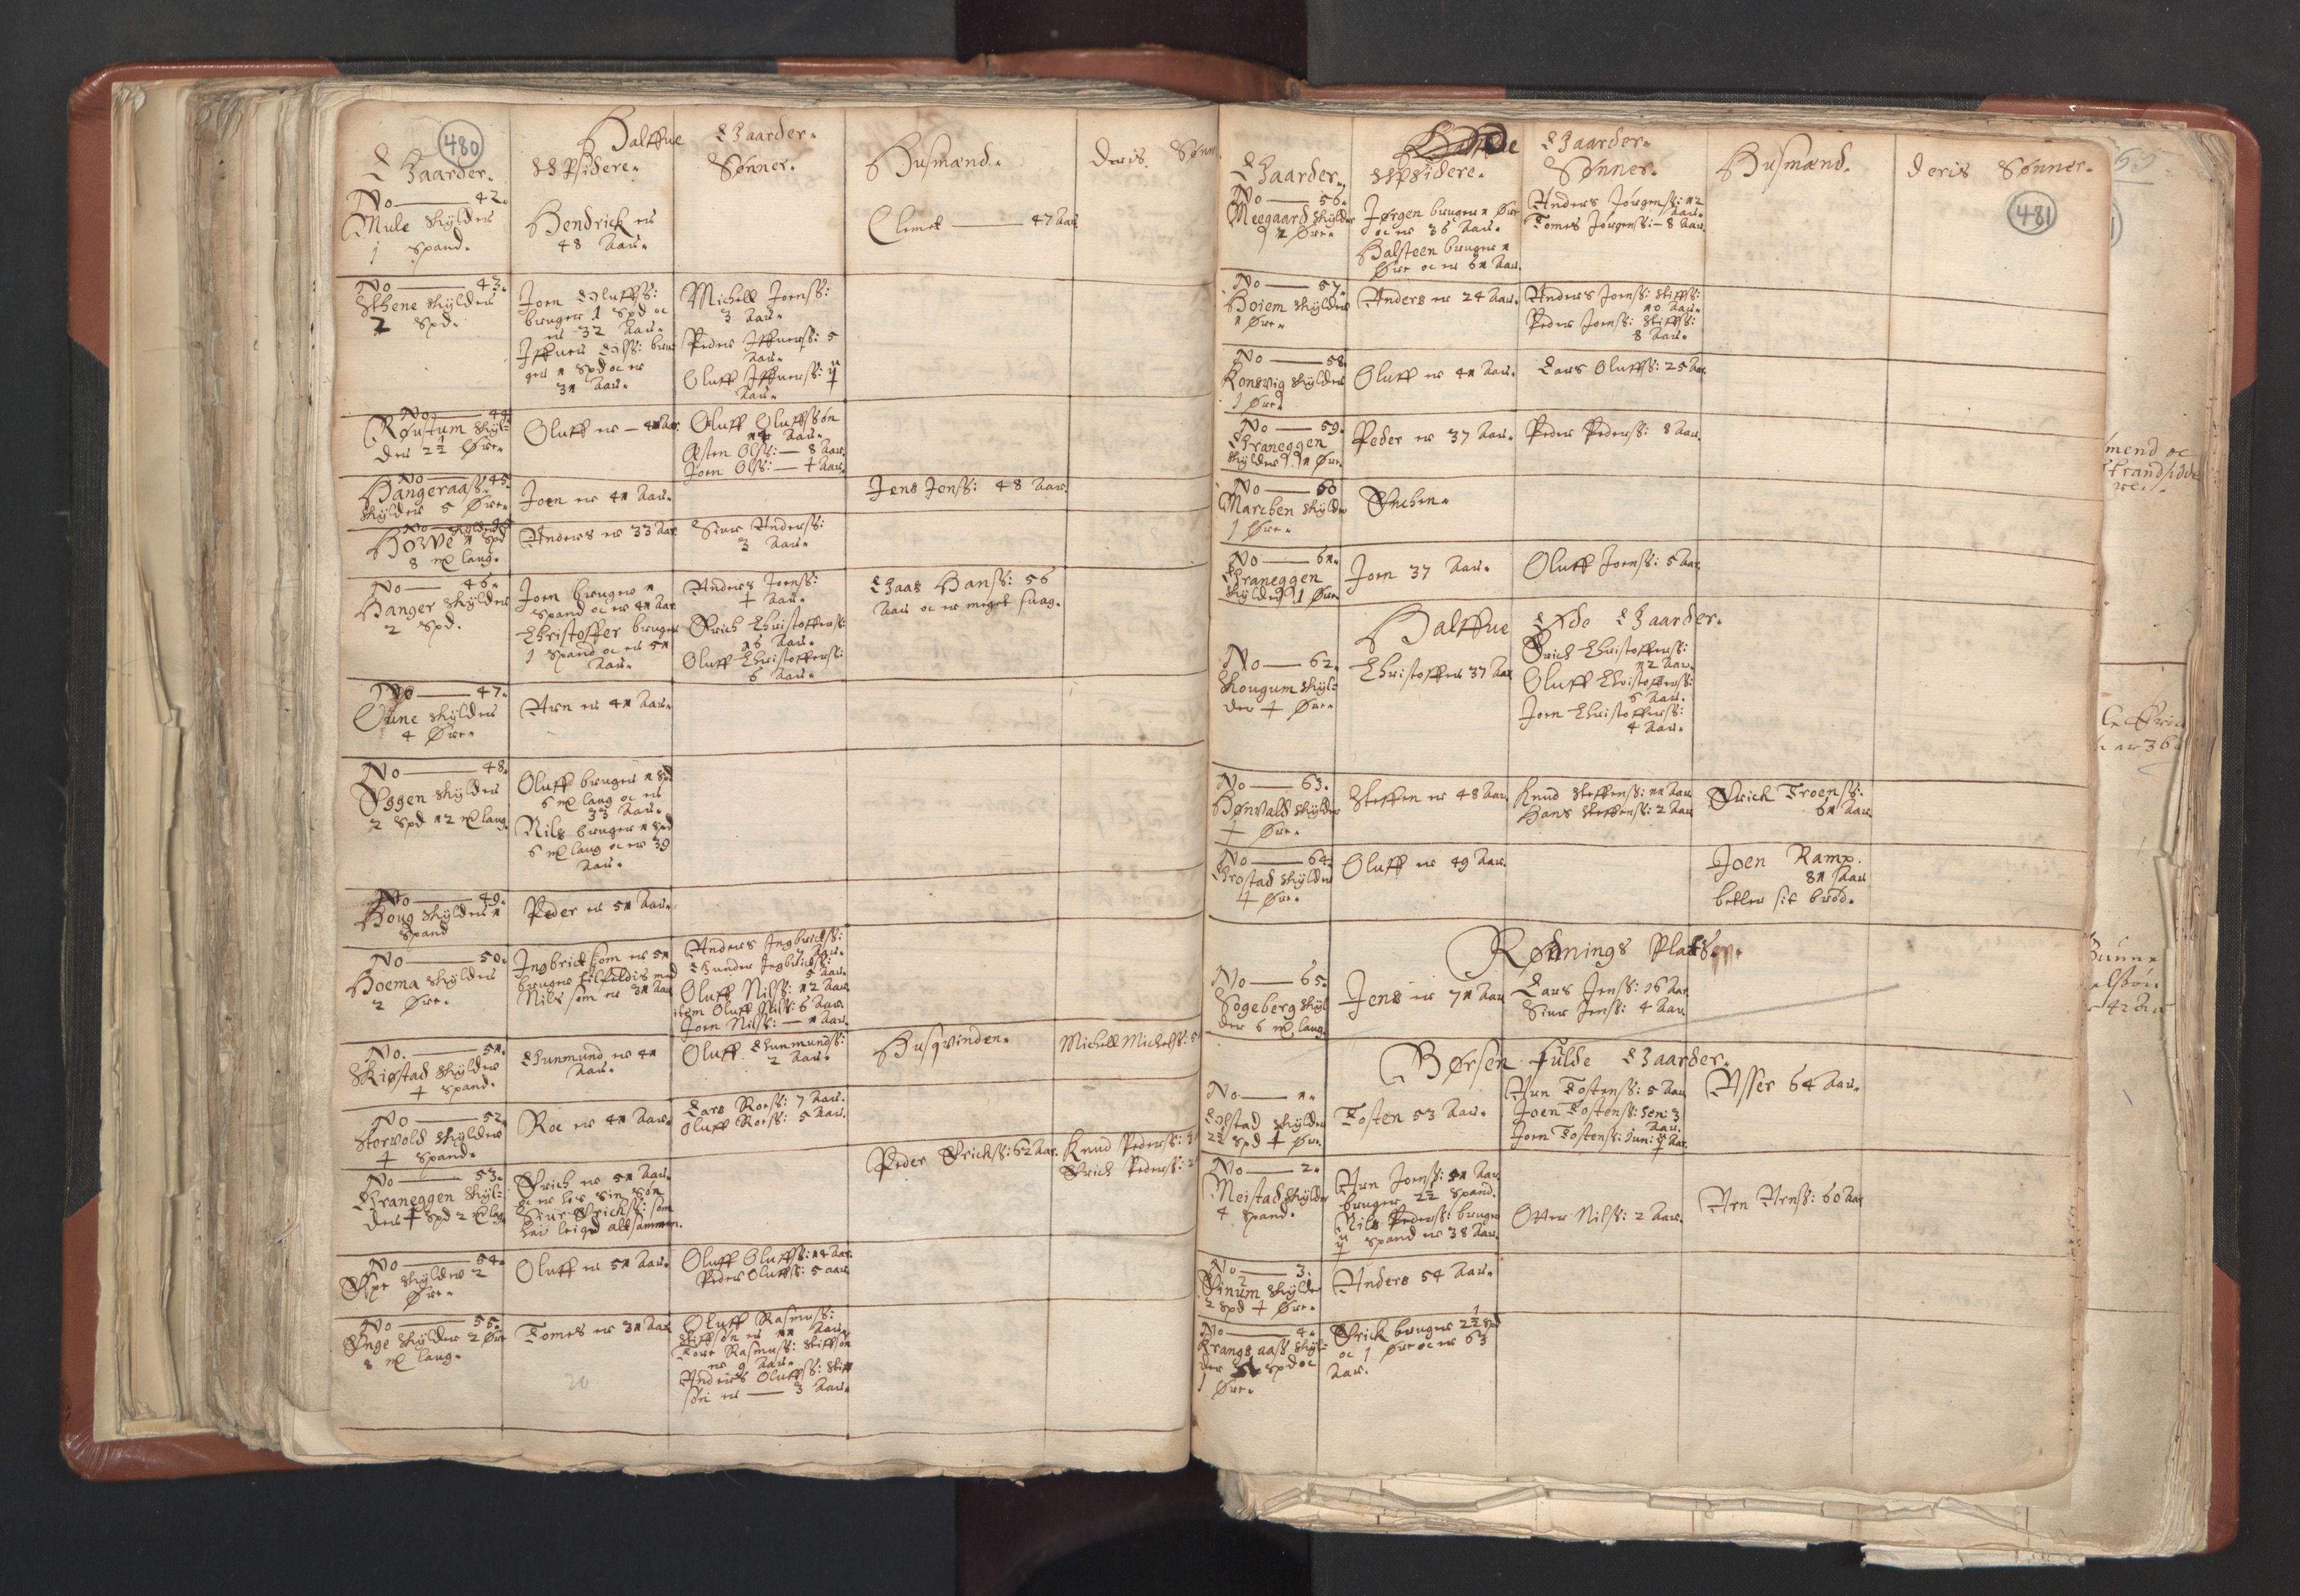 480
Halffue Gaarder.
Gaarder. Opsidere. Sönner. Husmænd. Deris Sønn
No 42.
Mule skylder
1 spand.
Hendrick er
48 Aar.
Clemet 47 Aar
No 43.
Sthene skylder
2 spd.
Joen Oluffs:
bruger 1 spd oc
er 32 Aar.
Iffuer Olss: bru
ger 1 spd oc er
31 Aar.
Michell Joenss:
3 Aar.
Peder Iffuerss: 5
Aar.
Oluff Iffuerss:
Aar.
No 44.
Røustum skyl:
der 2½ Øre.
Oluff er 41 Aar.
Oluff Oluffssön
Aar.
Østen Olss: 8 Aar.
Joen Olss: 4 Aar.
No 45.
Hangeraass
skylder 5 Øre.
Joen er 41 Aar.
Jens Jenss: 48 Aar.
No
Howe skylder 1 spd
8 mk laug.
Anders er 33 Aar.
Siur Anderss:
3 Aar.
No 46.
Hanger skylder
2 spd.
Joen bruger 1
spand oc er 41 Aar
Christoffer bruger
1 spand oc er 51
Aar.
Anders Joenss:
4 Aar.
Erich Christofferss:
16 Aar.
Oluff Christofferss:
6 Aar.
Claas Hanss: 56
Aar oc er meget suag.
No 47.
Oune skylder
4 Øre.
Arn er 41 Aar.
No 48.
Øggen skylder
2 spd 12 mk laug.
Oluff bruger 1 spd
6 mk laug oc er
33 Aar.
Nils bruger 1 spd
6 mk laug oc er 39
Aar.
No 49.
Houg skylder 1
spand
Peder er 51 Aar.
No 50.
Hoema skylder
2 Øre.
Ingbrict som er 51
bruger tilfeldis med
Nils som er 31 Aar
Anders Ingbrictss:
7 Aar.
Gunder Ingbrictss:
5 Aar.
Oluff Nilss: 12 Aar
item Oluff Nilss: 6 Aar.
Joen Nilss: 1 Aar.
No. 51.
Skiøstad skylder
4 spand.
Gunmund er 41
Aar.
Oluff Gunmundss:
2 Aar.
Husqvinden.
Michell Michelss: 5
No 52.
Storvold skylder
4 spand.
Roe er 41 Aar.
Lars Roess: 7 Aar.
Oluff Roess: 5 Aar.
No 53.
Graneggen skyl:
der 4 spd 2 mk lag
Erich er 51 Aar.
oc er hos sin Søn
Siur Erichss: som
har leiged altsammen.
Peder Erichss: 62 Aar.
Knud Pederss: 3
Erich Pederss: 2
No 54.
Øpe skylder 2
Øre.
Oluff er 51 Aar.
Oluff Oluffss: Aar.
Peder Oluffss: 5 aar
No 55.
Enge skylder 2 Øre
8 mk laug.
Tomes er 31 Aar
Oluff Rasmuss:
stiffsøn er 11 Aar.
Tore Rasmuss: stiffsøn
er 9 Aar.
Anders Oluffss: stiff
sön er 3 Aar.
20
481
Halffue Gaarder.
Gaarder. Opsidere. Sønner. Husmænd. Deris Sønner.
No 56.
Meegaard skylder
2 Øre.
Jørgen bruger 1 Øre
oc er 36 Aar.
Halsteen bruger 1
Øre oc er 61 Aar.
Anders Jörgenss: 12
Aar.
Tomes Jörgenss: 8 Aar.
No 57.
Hoiem skylder
1 Øre.
Anders er 24 Aar.
Anders Joenss: stiffs:
10 Aar.
Peder Joenss: stiffs:
8 Aar.
No 58.
Konsvig skylder
1 Øre
Oluff er 41 Aar.
Lars Oluffs: 25 Aar
No 59.
Graneggen
skylder 1 Øre.
Peder er 37 Aar.
Peder Pederss: 8 Aar.
No 60
Marcben skylder
1 Øre.
Enchen.
No 61.
Graneggen
skylder 1 Øre
Joen 37 Aar.
Oluff Joenss: 5 Aar
Halffue Øde Gaarder.
No 62.
Skougum skyl:
der 4 Øre.
Christoffer 37 Aar
Erich Christofferss:
12 Aar.
Oluff Christofferss:
6 Aar.
Joen Christofferss:
4 Aar.
No 63.
Hønvald skylder
4 Øre.
Steffen er 48 Aar.
Knud Steffenss: 11 Aar
Hans Steffenss: 2 Aar
Erick Troenss:
61 Aar.
No 64.
Grostad skylder
4 Øre.
Oluff er 49 Aar.
Joen Ramp.
81 Aar
betler sit brød.
Rødnings Platser.
No 65.
Sogeberg skyl
der 6 mk laug.
Jens er 71 Aar
Lars Jenss: 16 Aar
Siur Jenss: 4 Aar
Børsen Fulde Gaarder.
No 1.
Eolstad skylder
2½ spd 4 Øre.
Tosten 53 Aar.
Arn Tostenss: 5 Aar
Joen Tostenss: Sen: 3
Aar.
Joen Tostenss: Jun: Aar.
Asser 64 Aar.
No 2.
Meistad skylder
4 spand.
Arn Joenss: 51 Aar
bruger 2½ spand.
Nils Pederss: bruger
spand er 38 Aar.
Otter Nilss: 2 Aar.
Arn Arnss: 60 Aar
No 3.
Einum skylder
2 spd 4 Øre.
Anders 54 Aar.
No 4.
Krangsaass skyl:
der spd oc
1 Øre.
Erick bruger 2½ spd
oc 1 Øre oc er 63
Aar.
mend oc
Strandsidde
42 Aar